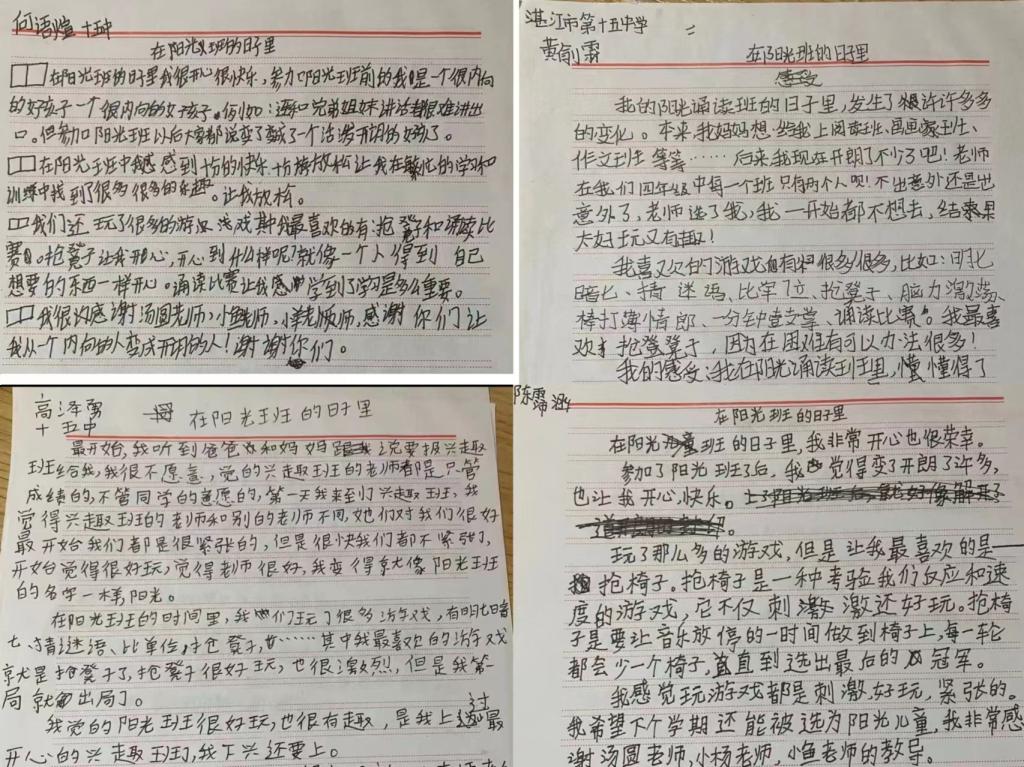 何语煊 十五中
在阳光班的日子里
在阳光班的日子里我很开心很快乐,参加阳光班前的我是一个很内向
的好孩子一个很内向的好孩子。例如:连和兄弟姐妹讲话都很难讲出
口。但参加阳光班以后大家都说变了变了一个活泼开朗的好孩了。
在阳光班中我感到十分的快乐十分放松让我在繁忙的学习和
训练中找到了很多很多的乐趣。让我放松。
我们还玩了很多的游戏其中我最喜欢的有:抢凳子和诵读比
赛。抢凳子让我开心,开心到什么样呢?就像一个人得到自己
想要的东西一样开心。诵读比赛让我感学到了学习是多么重要。
我很感谢汤圆老师,小鱼老师,小羊老师,感谢你们让
我从一个内向的人变成开朗的人!谢谢你们。
湛江市第十五中学
黄俞霖
在阳光班的日子里
我的阳光诵读班的日子里,发生了许许多多
的变化。本来我妈妈想给我上阅读班、画画班、
作文班等等……后来我现在开朗了不少了吧!老师
在我们四年级中每一个班只有两个人呗!不出意外还是出
意外了,老师选了我,我一开始都不想去,结果
太好玩又有趣!
我喜欢的游戏有很多很多,比如:明七
暗七、猜迷语、比单位、抢凳子、脑力激荡、
棒打薄情郎、一分钟登文学、诵读比赛。我最喜
欢抢凳子,因为在困难有可以办法很多!
我的感受:我在阳光诵读班里,懂懂得了
高泽勇
十五中
在阳光班的日子里
最开始,我听到爸爸和妈妈说要报兴趣
班给我,我很不愿意,觉的兴趣班的老师都是只管
成绩的,不管同学的意愿的,第一天我来到兴趣班,我
觉得兴趣班的老师和别的老师不同,她们对我们很好
最开始我们都是很紧张的,但是很快我们都不紧张了,
开始觉得很好玩,觉得老师很好,我变得就像阳光班
的名字一样阳光。
在阳光班的时间里,我们玩了很多游戏,有明七暗
七、猜迷语、比单位,抢凳子,……其中我最喜欢的游戏
就是抢凳子了,抢凳子很好玩,也很激烈,但是我第一
局就出局了。
我觉的阳光班很好玩,也很有趣,是我上过最
开心的兴趣班,我下兴还要上。
陈霈涵
在阳光班的日子里
在阳光班的日子里,我非常开心也很荣幸。
参加了阳光班了后,我觉得变了开朗了许多,
也让我开心,快乐。
玩了那么多的游戏,但是让我最喜欢的是—
抢椅子。抢椅子是一种考验我们反应和速
度的游戏,它不仅刺激还好玩。抢椅
子是要让音乐放停的一时间做到椅子上,每一轮
都会少一个椅子,直到选出最后的冠军。
我感觉玩游戏都是刺激、好玩,紧张的。
我希望下个学期还能被选为阳光儿童,我非常感
谢汤圆老师,小杨老师,小鱼老师的教导。